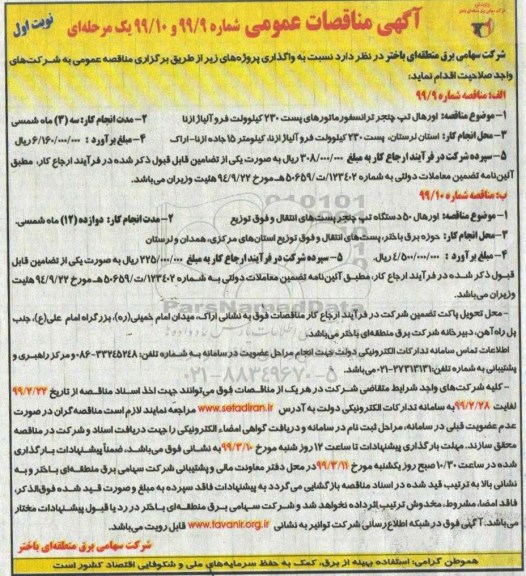 نوبت اول
آگهی مناقصات عمومی شماره ۹۹/۹ و ۹۹/۱۰ یک مرحله‌ای
شرکت سهامی برق منطقه‌ای باختر در نظر دارد نسبت به واگذاری پروژه‌های زیر از طریق برگزاری مناقصه عمومی به شرکت‌های
واجد صلاحیت اقدام نماید:
الف: مناقصه شماره ۹۹/۹
۱- موضوع مناقصه: اورهال تپ چنجر ترانسفورماتورهای پست ۲۳۰ کیلوولت فرو آلیاژ ازنا ۲- مدت انجام کار: سه (۳) ماه شمسی
۳- محل انجام کار: استان لرستان، پست ۲۳۰ کیلوولت فرو آلیاژ ازنا، کیلومتر ۱۵ جاده ازنا- اراک ۴- مبلغ برآورد : ۶/۱۶۰/۰۰۰/۰۰۰ ریال
۵- سپرده شرکت در فرآیند ارجاع کار به مبلغ ۳۰۸/۰۰۰/۰۰۰ ریال به صورت یکی از تضامین قابل قبول ذکر شده در فرآیند ارجاع کار، مطابق
آئین‌نامه تضمین معاملات دولتی به شماره ۱۲۳۴۰۲/ت۵۰۶۵۹هـ مورخ ۹۴/۹/۲۲ هئیت وزیران می‌باشد.
ب: مناقصه شماره ۹۹/۱۰
۱- موضوع مناقصه: اورهال ۵۰ دستگاه تپ چنجر پست‌های انتقال و فوق توزیع ۲- مدت انجام کار: دوازده (۱۲) ماه شمسی.
۳- محل انجام کار: حوزه برق باختر، پست‌های انتقال و فوق توزیع استان‌های مرکزی، همدان و لرستان
۴- مبلغ برآورد : ۴/۵۰۰/۰۰۰/۰۰۰ ریال ۵- سپرده شرکت در فرآیند ارجاع کار به مبلغ ۲۲۵/۰۰۰/۰۰۰ ریال به صورت یکی از تضامین قابل
قبول ذکر شده در فرآیند ارجاع کار، مطابق آئین‌نامه تضمین معاملات دولتی به شماره ۱۲۳۴۰۲/ت۵۰۶۵۹هـ مورخ ۹۴/۹/۲۲ هئیت
وزیران می‌باشد.
- محل تحویل پاکت تضمین شرکت در فرآیند ارجاع کار مناقصات فوق به نشانی اراک، میدان امام خمینی(ره)، بزرگراه امام علی(ع)، جنب
پل راه‌آهن، دبیرخانه شرکت برق منطقه‌ای باختر می‌باشد.
اطلاعات تماس سامانه تدارکات الکترونیکی دولت جهت انجام مراحل عضویت در سامانه به شماره تلفن: ۳۳۲۴۵۲۴۸-۰۸۶ و مرکز راهبری و
پشتیبانی به شماره تلفن: ۲۷۳۱۳۱۳۱-۰۲۱ می‌باشد.
- کلیه شرکت‌های واجد شرایط متقاضی شرکت در هر یک از مناقصات فوق می‌توانند جهت اخذ اسناد مناقصه از تاریخ ۹۹/۲/۲۲
لغایت ۹۹/۲/۲۸ به سامانه تدارکات الکترونیکی دولت به آدرس www.setadiran.ir مراجعه نمایند لازم است مناقصه‌گران در صورت
عدم عضویت قبلی در سامانه، مراحل ثبت نام در سامانه و دریافت گواهی امضاء الکترونیکی را جهت دریافت اسناد و شرکت در مناقصه
محقق سازند. مهلت بارگذاری پیشنهادات تا ساعت ۱۲ روز شنبه مورخ ۹۹/۳/۱۰ به نشانی فوق می‌باشد، ضمناً پیشنهادات بارگذاری
شده در ساعت ۱۰/۳۰ صبح روز یکشنبه مورخ ۹۹/۳/۱۱ در محل دفتر معاونت مالی و پشتیبانی شرکت سهامی برق منطقه‌ای باختر و به
نشانی بالا به ترتیب قید شده در اسناد مناقصه بازگشایی می‌گردد به پیشنهادات فاقد سپرده به مبلغ و صورت قید شده فوق‌الذکر،
فاقد امضا، مشروط، مخدوش ترتیب اثر داده نخواهد شد و شرکت سهامی برق منطقه‌ای باختر در رد یا قبول پیشنهادات مختار
می‌باشد. آگهی فوق در شبکه اطلاع‌رسانی شرکت توانیر به نشانی www.tavanir.org.ir قابل رویت می‌باشد.
شرکت سهامی برق منطقه‌ای باختر
هموطن گرامی: استفاده بهینه از برق، کمک به حفظ سرمایه‌های ملی و شکوفایی اقتصاد کشور است
ParsNamadData
۰۲۱-۸۸۳۴۹۶۷۰-۵